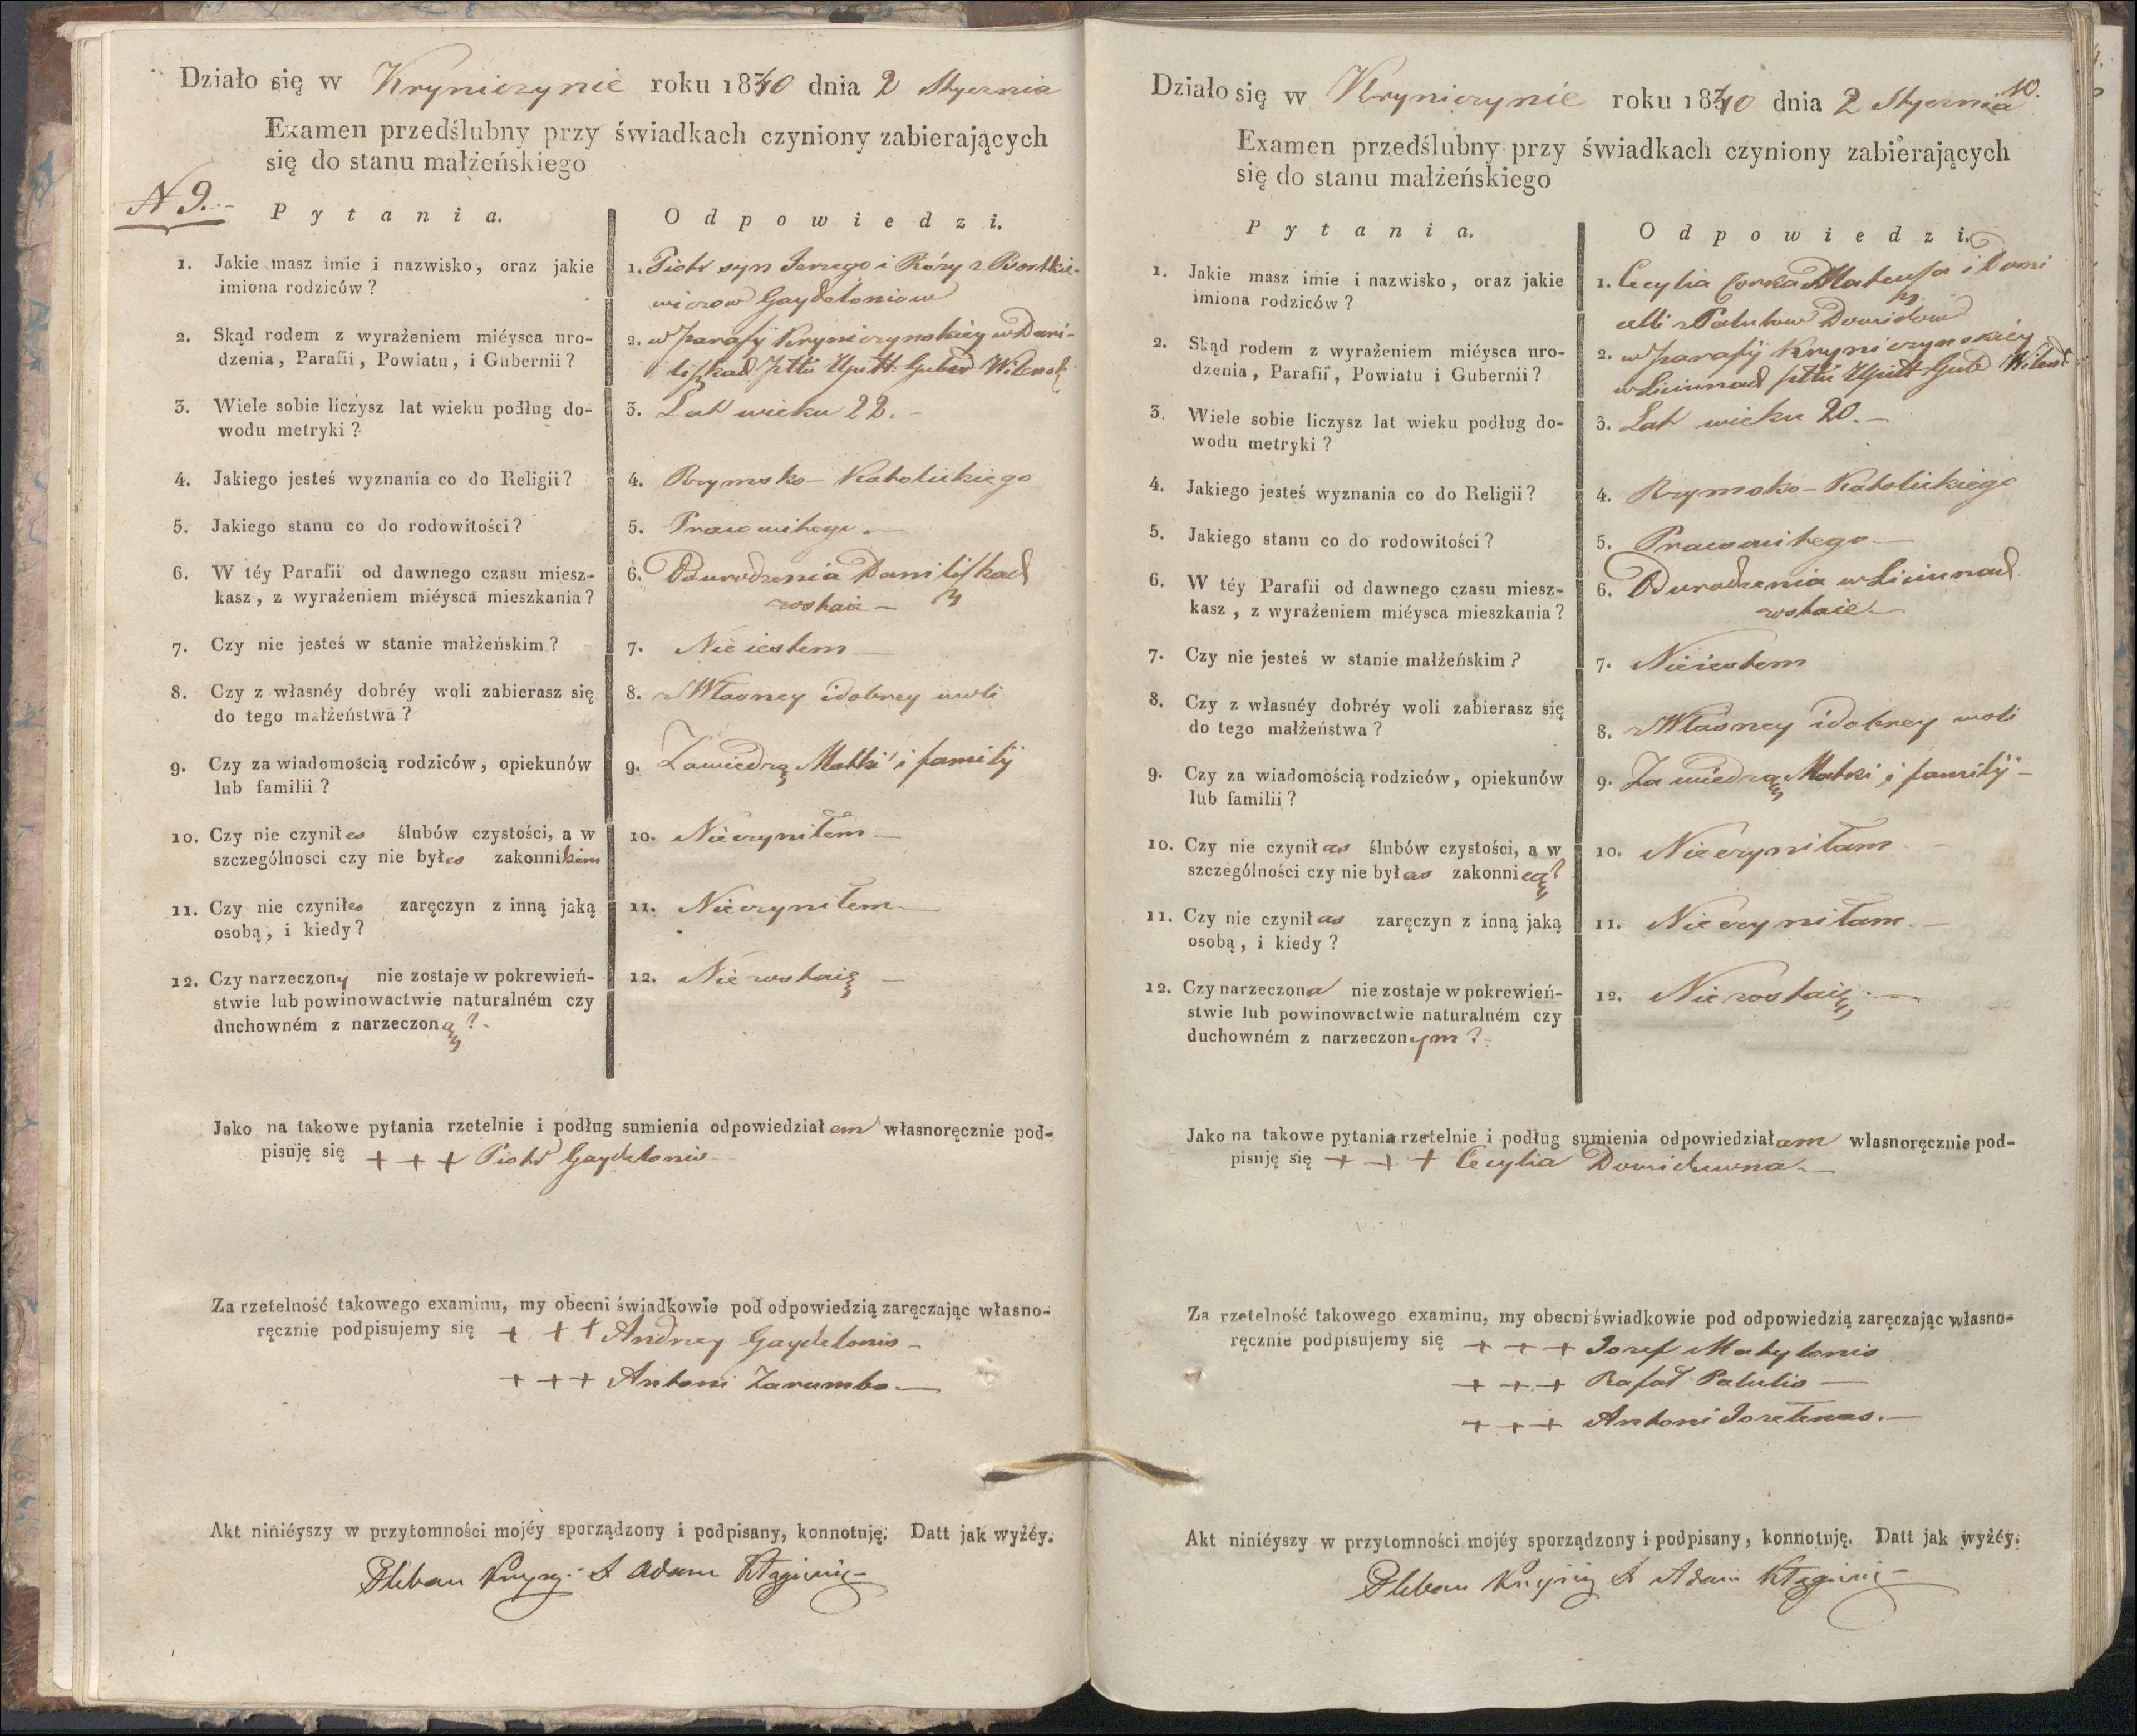 Działo się w Kryniczynie roku 1840 dnia 2 Stycznia
Examen przedślubny przy świadkach czyniony zabierających
się do stanu małżeńskiego
N 9.
Pytania.
Odpowiedzi.
1. Jakie masz imie i nazwisko, oraz jakie
imiona rodziców?
1. Piotr syn Jerzego i Róży z Bortkie-
wiczow Gaydeloniow
2. Skąd rodem z wyrażeniem miéysca uro-
dzenia, Parafii, Powiatu, i Gubernii?
2. w parafij Kryniczynskiey w Dani-
liszkach pttu Upitt: Guber Wilensk
3. Wiele sobie liczysz lat wieku podług do-
wodu metryki?
3. Lat wieku 22.
4. Jakiego jesteś wyznania co do Religii?
4. Rzymsko-Katolickiego
5. Jakiego stanu co do rodowitości?
5. Pracowitego
6. W téy Parafii od dawnego czasu miesz-
kasz, z wyrażeniem miéysca mieszkania?
6. Od urodzenia Daniliszkach
zostaie
7. Czy nie jesteś w stanie małżeńskim?
7. Nie iestem
8. Czy z własnéy dobréy woli zabierasz się
do tego małżeństwa?
8. z Własney i dobrey woli
9. Czy za wiadomością rodziców, opiekunów
lub familii?
9. Za wiedzą Matki i familij
10. Czy nie czyniłes ślubów czystości, a w
szczególnosci czy nie byłes zakonnikiem
10. Nie czyniłem
11. Czy nie czyniłes zaręczyn z inną jaką
osobą, i kiedy?
11. Nie czyniłem
12. Czy narzeczony nie zostaje w pokrewień-
stwie lub powinowactwie naturalném czy
duchowném z narzeczoną?
12. Nie zostaię
Jako na takowe pytania rzetelnie i podług sumienia odpowiedziałem własnoręcznie pod-
pisuję się + + + Piotr Gaydelonis
Za rzetelność takowego examinu, my obecni świadkowie pod odpowiedzią zaręczając własno-
ręcznie podpisujemy się + + + Andrzey Gaydelonis
+ + + Antoni Zarumbo
Akt niniéyszy w przytomności mojéy sporządzony i podpisany, konnotuję. Datt jak wyżéy.
Pleban Adam
10.
Działo się w Kryniczynie roku 1840 dnia 2 Stycznia
Examen przedślubny przy świadkach czyniony zabierających
się do stanu małżeńskiego
Pytania.
Odpowiedzi.
1. Jakie masz imie i nazwisko, oraz jakie
imiona rodziców?
1. Cecylia Corka Mateusza i Domi
celli z Palulow Dowidow
2. Skąd rodem z wyrażeniem miéysca uro-
dzenia, Parafii, Powiatu i Gubernii?
2. w parafij Kryniczynskiey
w Liciunach pttu Upitt Gub Wilensk
3. Wiele sobie liczysz lat wieku podług do-
wodu metryki?
3. Lat wieku 20.
4. Jakiego jesteś wyznania co do Religii?
4. Rzymsko-Katolickiego
5. Jakiego stanu co do rodowitości?
5. Pracowitego
6. W téy Parafii od dawnego czasu miesz-
kasz, z wyrażeniem miéysca mieszkania?
6. Od urodzenia w Liciunach
zostaie
7. Czy nie jesteś w stanie małżeńskim?
7. Nie iestem
8. Czy z własnéy dobréy woli zabierasz się
do tego małżeństwa?
8. z Własney i dobrey woli
9. Czy za wiadomością rodziców, opiekunów
lub familii?
9. Za wiedzą Matki i familij
10. Czy nie czyniłas ślubów czystości, a w
szczególności czy nie byłas zakonnicą?
10. Nie czyniłam
11. Czy nie czyniłas zaręczyn z inną jaką
osobą, i kiedy?
11. Nie czyniłam
12. Czy narzeczona nie zostaje w pokrewień-
stwie lub powinowactwie naturalném czy
duchowném z narzeczonym?
12. Nie zostaię
Jako na takowe pytania rzetelnie i podług sumienia odpowiedziałam własnoręcznie pod-
pisuję się + + + Cecylia Dowiduwna
Za rzetelność takowego examinu, my obecni świadkowie pod odpowiedzią zaręczając własno-
ręcznie podpisujemy się + + + Jozef Matylonis
+ + + Rafał Palulis
+ + + Antoni Jozełenas.
Akt niniéyszy w przytomności mojéy sporządzony i podpisany, konnotuję. Datt jak wyżéy.
Pleban Adam